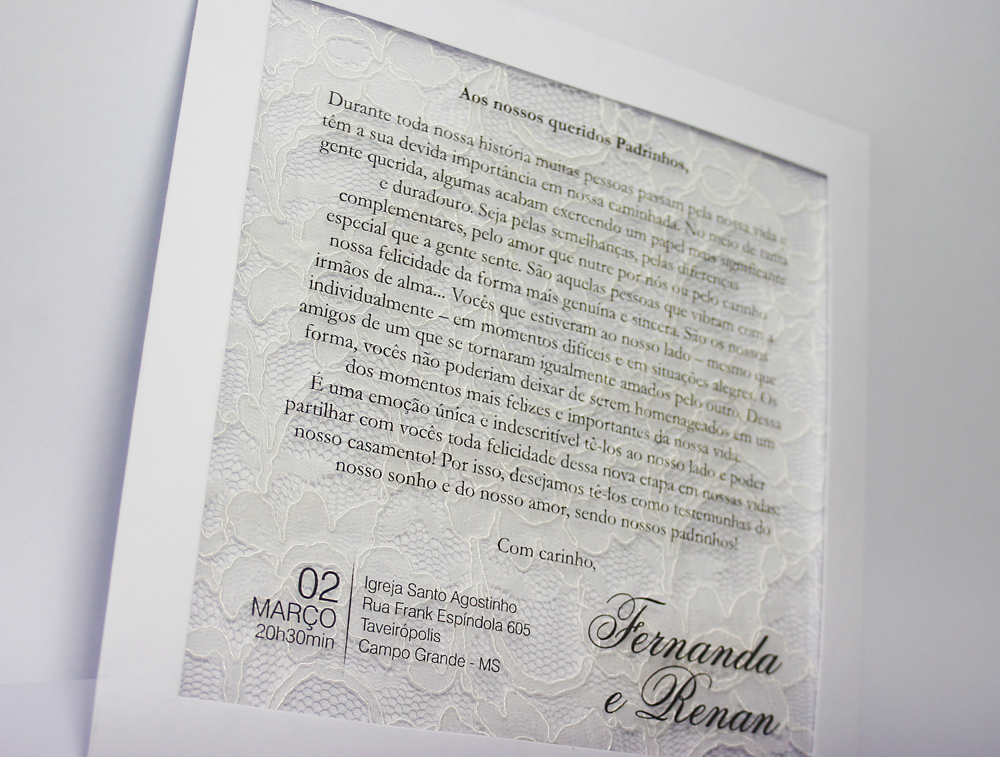 Aos nossos queridos Padrinhos,
Durante toda nossa história muitas pessoas passam pela nossa vida e
têm a sua devida importância em nossa caminhada. No meio de tanta
gente querida, algumas acabam exercendo um papel mais significante
e duradouro. Seja pelas semelhanças, pelas diferenças
complementares, pelo amor que nutre por nós ou pelo carinho
especial que a gente sente. São aquelas pessoas que vibram com a
nossa felicidade da forma mais genuína e sincera. São os nossos
irmãos de alma... Vocês que estiveram ao nosso lado – mesmo que
individualmente – em momentos difíceis e em situações alegres. Os
amigos de um que se tornaram igualmente amados pelo outro. Dessa
forma, vocês não poderiam deixar de serem homenageados em um
dos momentos mais felizes e importantes da nossa vida.
É uma emoção única e indescritível tê-los ao nosso lado e poder
partilhar com vocês toda felicidade dessa nova etapa em nossas vidas:
nosso casamento! Por isso, desejamos tê-los como testemunhas do
nosso sonho e do nosso amor, sendo nossos padrinhos!
Com carinho,
02
MARÇO
20h30min
Igreja Santo Agostinho
Rua Frank Espíndola 605
Taveirópolis
Campo Grande - MS
Fernanda
e Renan